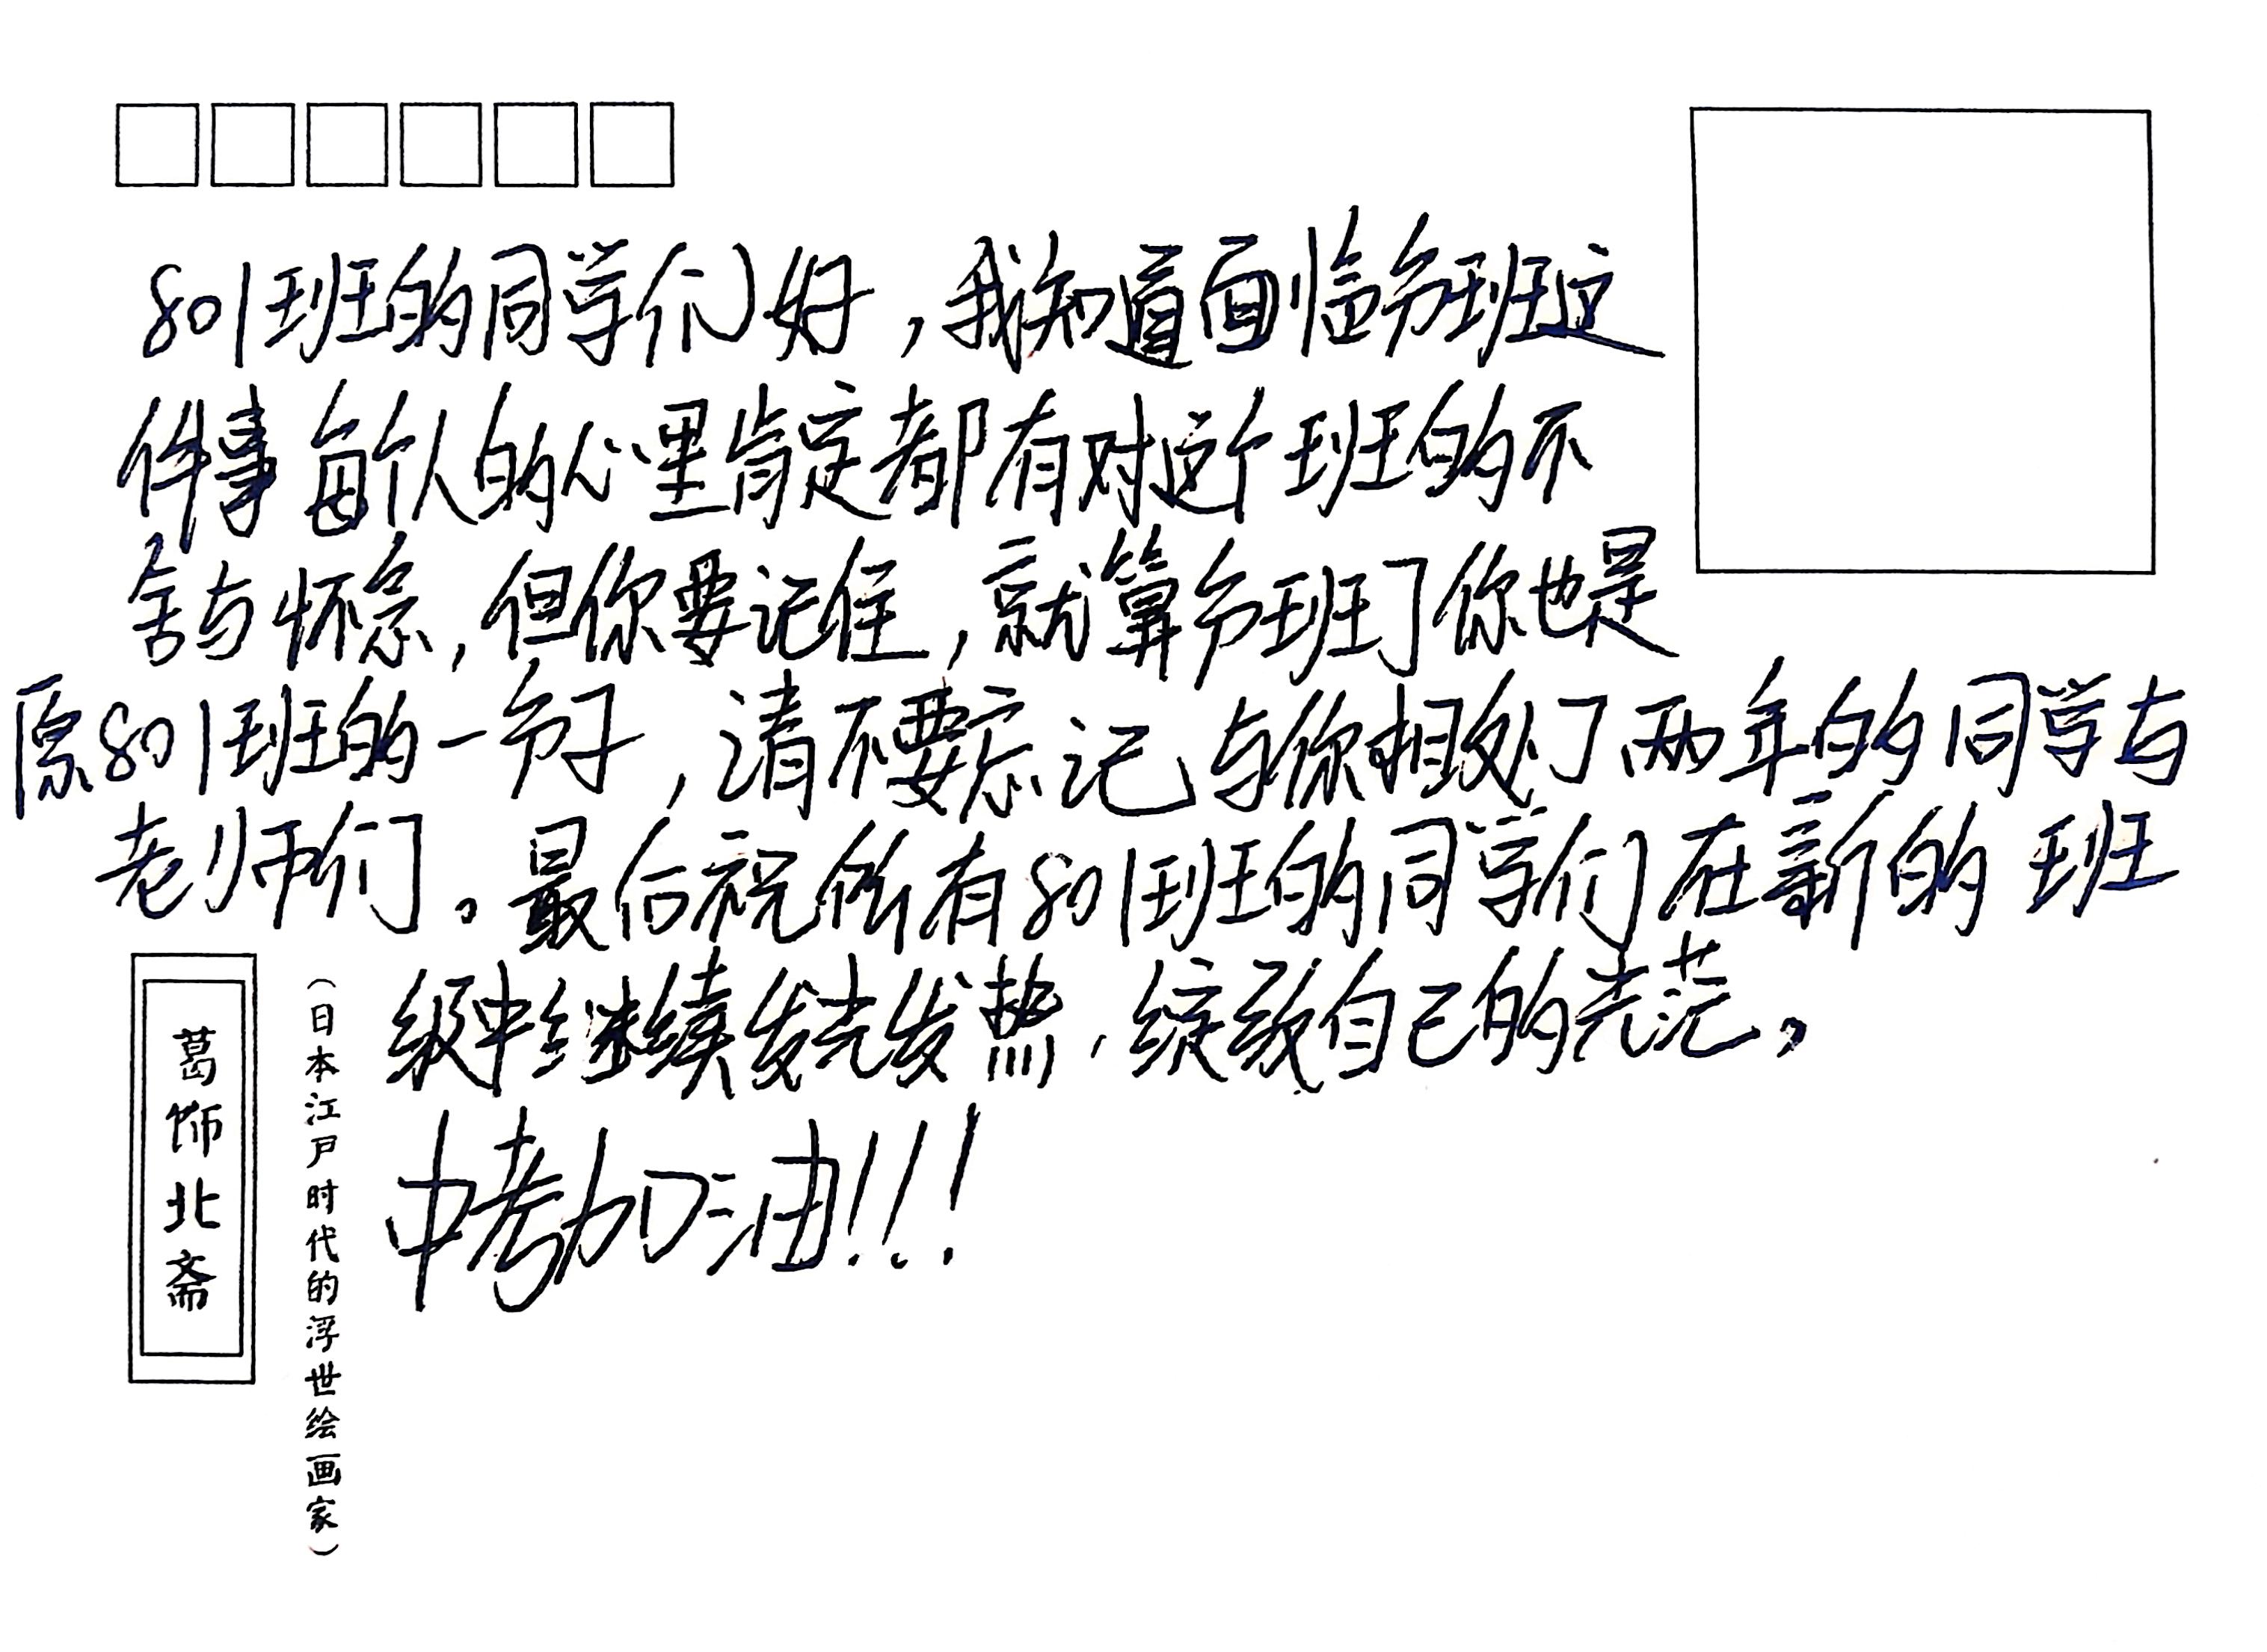 801班的同学们好，我知道面临分班这
件事每个人的心里肯定都有对这个班的不
舍与怀念，但你要记住，就算分班了你也是
原801班的一分子，请不要忘记与你相处了两年的同学与
老师们。最后祝所有801班的同学们在新的班
级中继续发光发热，绽放自己的光芒，
中考加油!!!
葛饰北斋
（日本江户时代的浮世绘画家）